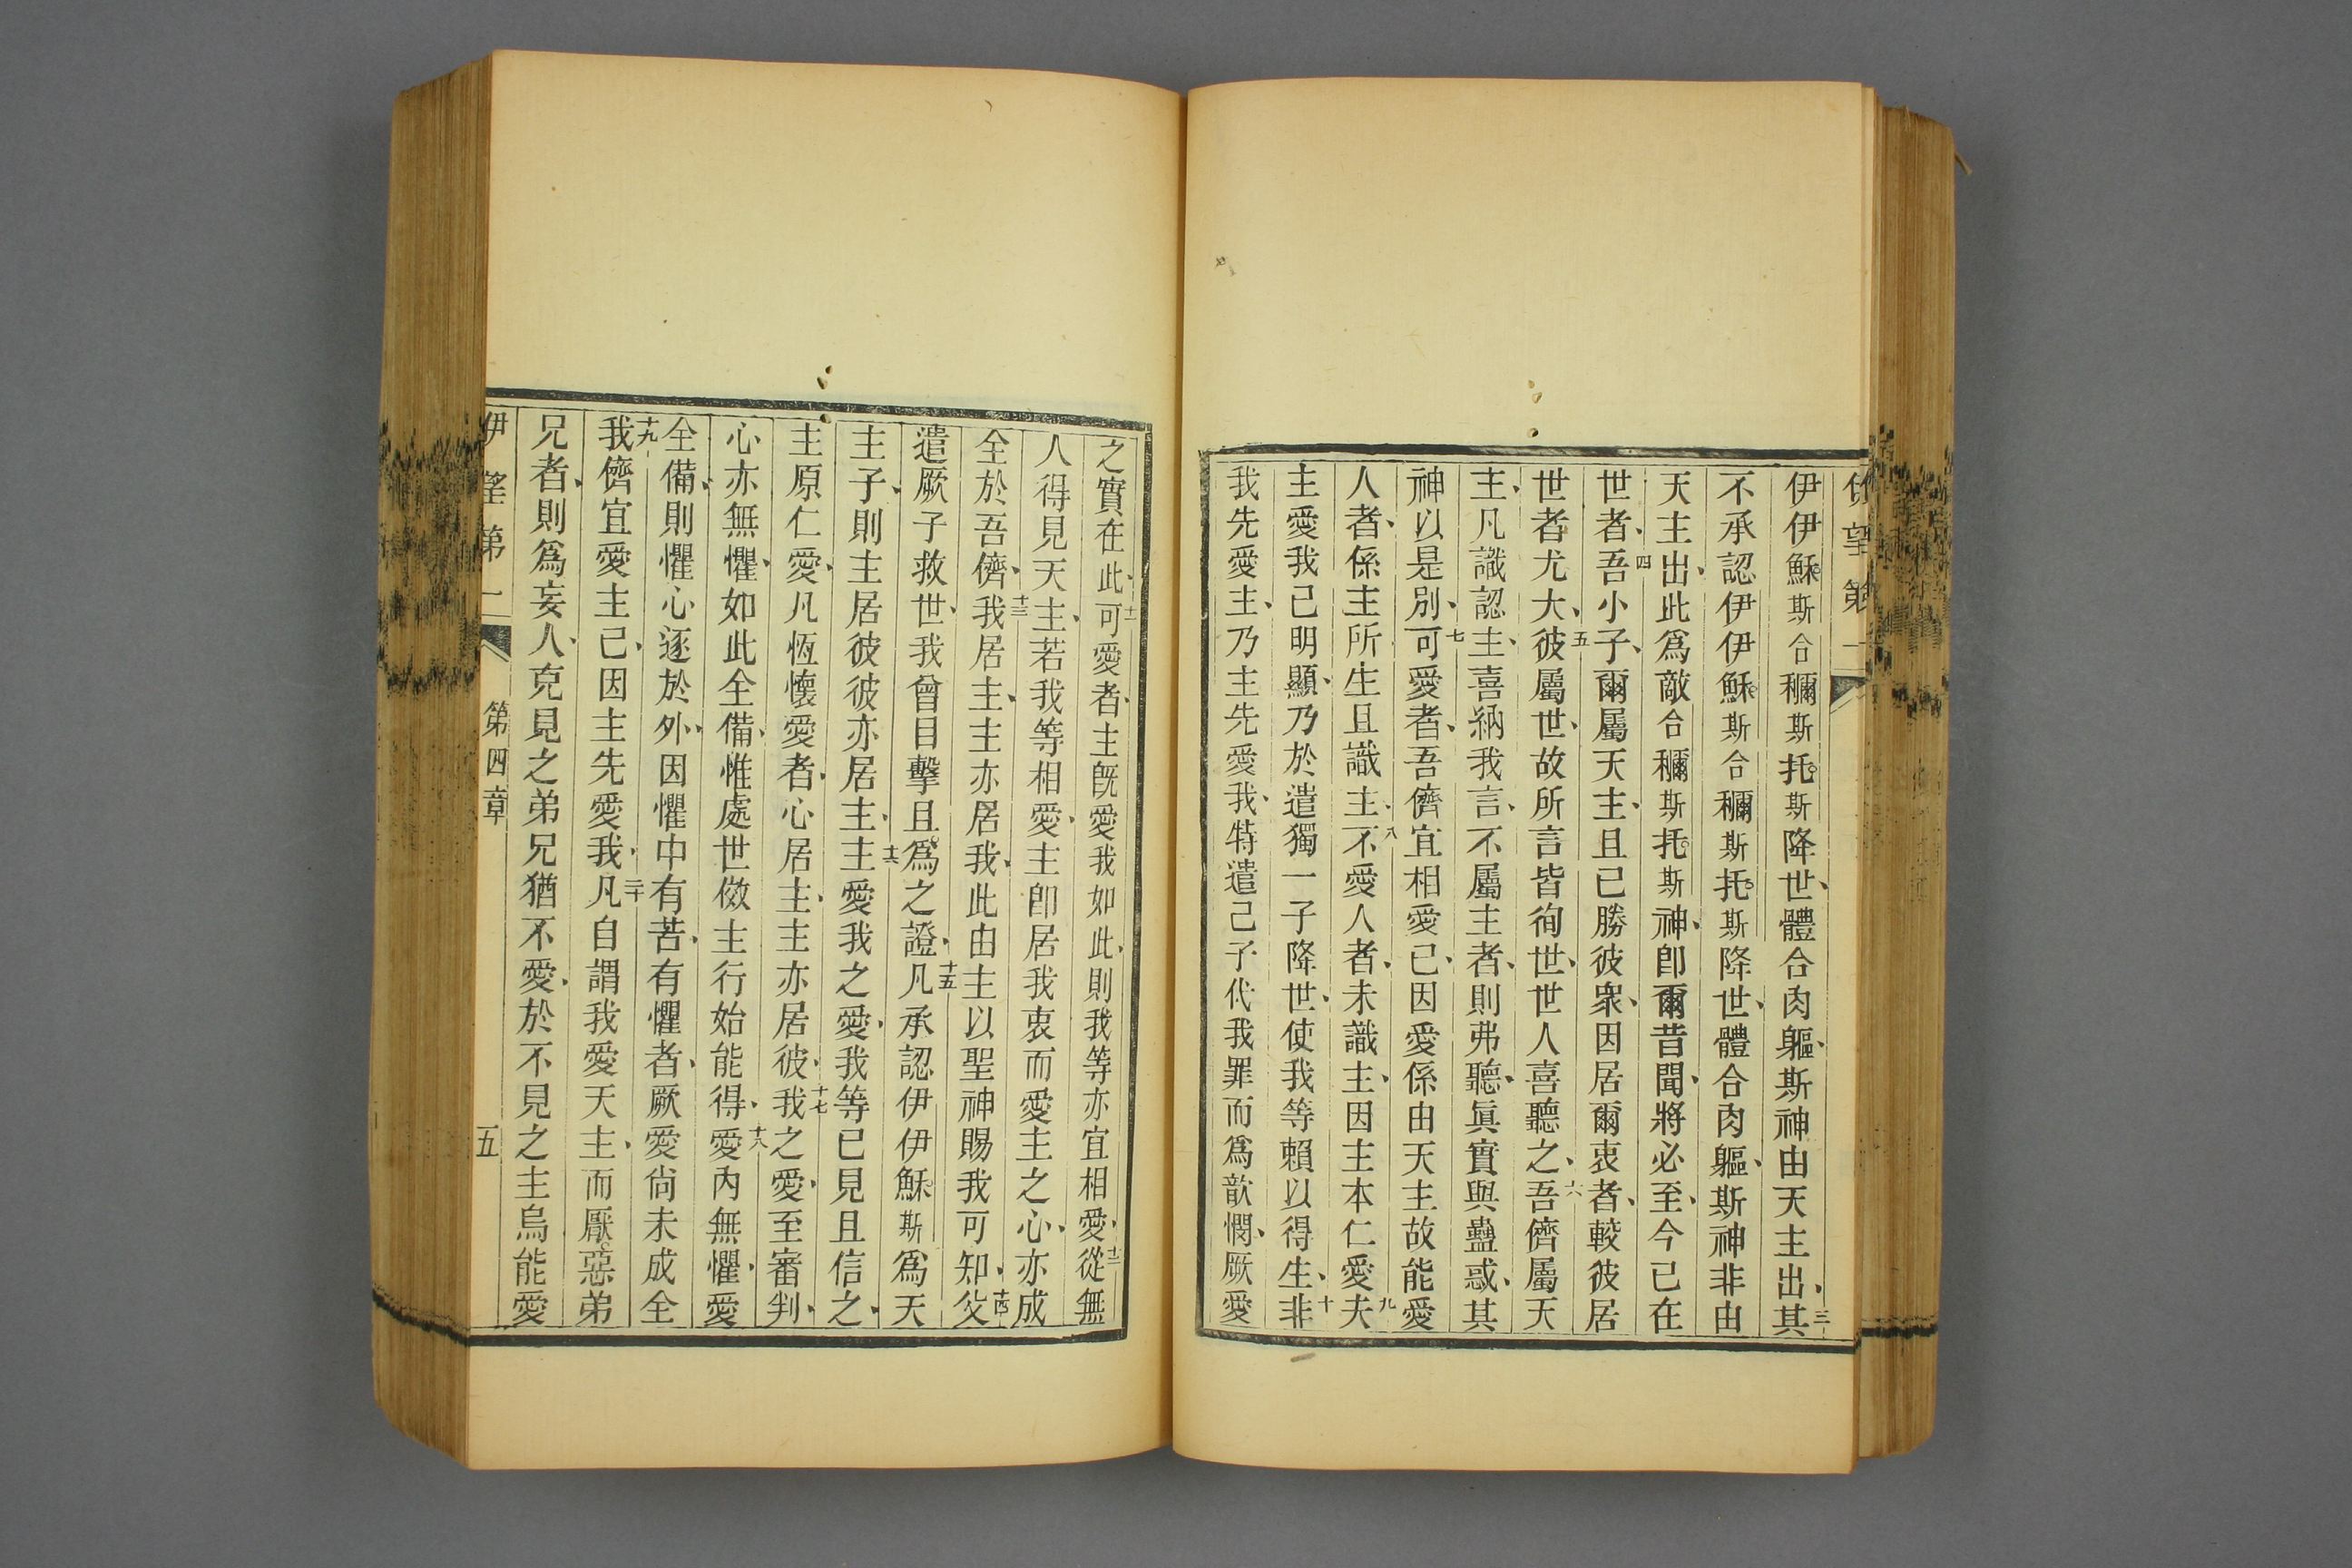 伊伊穌斯合穪斯托斯降世、體合肉軀、斯神由天主出、其三
不承認伊伊穌斯合穪斯托斯降世、體合肉軀、斯神非由
天主出、此爲敵合穪斯托斯神、卽爾昔聞、將必至、今已在
世者、四吾小子、爾屬天主、且已勝彼衆、因居爾衷者、較彼居
世者尤大、五彼屬世、故所言皆徇世、世人喜聽之、六吾儕屬天
主、凡識認主、喜納我言、不屬主者、則弗聽、眞實與蠱惑、其
神以是別、七可愛者、吾儕宜相愛、已因愛係由天主故能愛
人者、係主所生且識主、八不愛人者、未識主、因主本仁愛九夫
主愛我已明顯、乃於遣獨一子降世、使我等賴以得生、十非
我先愛主、乃主先愛我、特遣己子代我罪而爲歆憫、厥愛
之實在此、十一可愛者、主旣愛我如此、則我等亦宜相愛、十二從無
人得見天主、若我等相愛、主卽居我衷而愛主之心、亦成
全於吾儕、十三我居主、主亦居我、此由主以聖神賜我可知、十四父
遣厥子救世、我曾目擊且爲之證、十五凡承認伊伊穌斯爲天
主子、則主居彼彼亦居主、十六主愛我之愛、我等已見且信之、
主原仁愛、凡恆懷愛者、心居主、主亦居彼、十七我之愛、至審判、
心亦無懼、如此全備、惟處世倣主行始能得、十八愛內無懼、愛
全備、則懼心逐於外、因懼中有苦、有懼者、厥愛尙未成全
十九我儕宜愛主、已因主先愛我、二十凡自謂我愛天主、而厭惡弟
兄者、則爲妄人、克見之弟兄猶不愛、於不見之主烏能愛
第四章
五